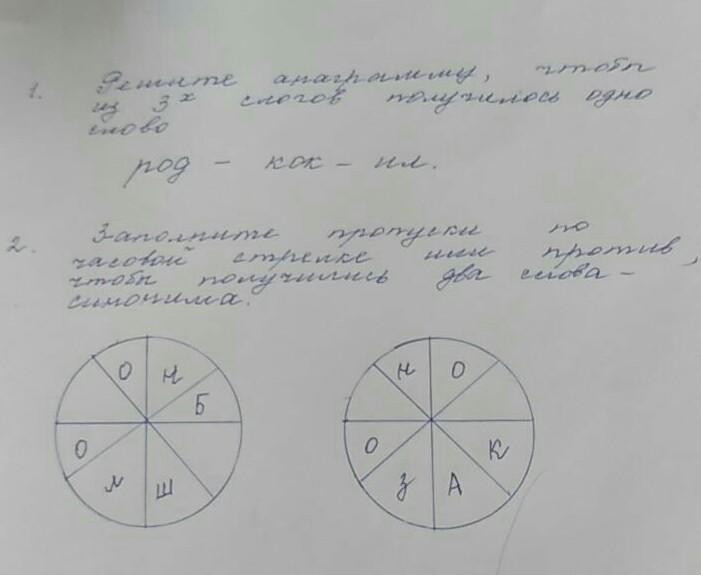 1. Решите анаграмму, чтобы
из 3х слогов получилось одно
слово
род – кок – ил.
2. Заполните пропуски по
часовой стрелке или против,
чтобы получились два слова –
синонима.
О Н
Б
О
Л Ш
Н О
О К
З А